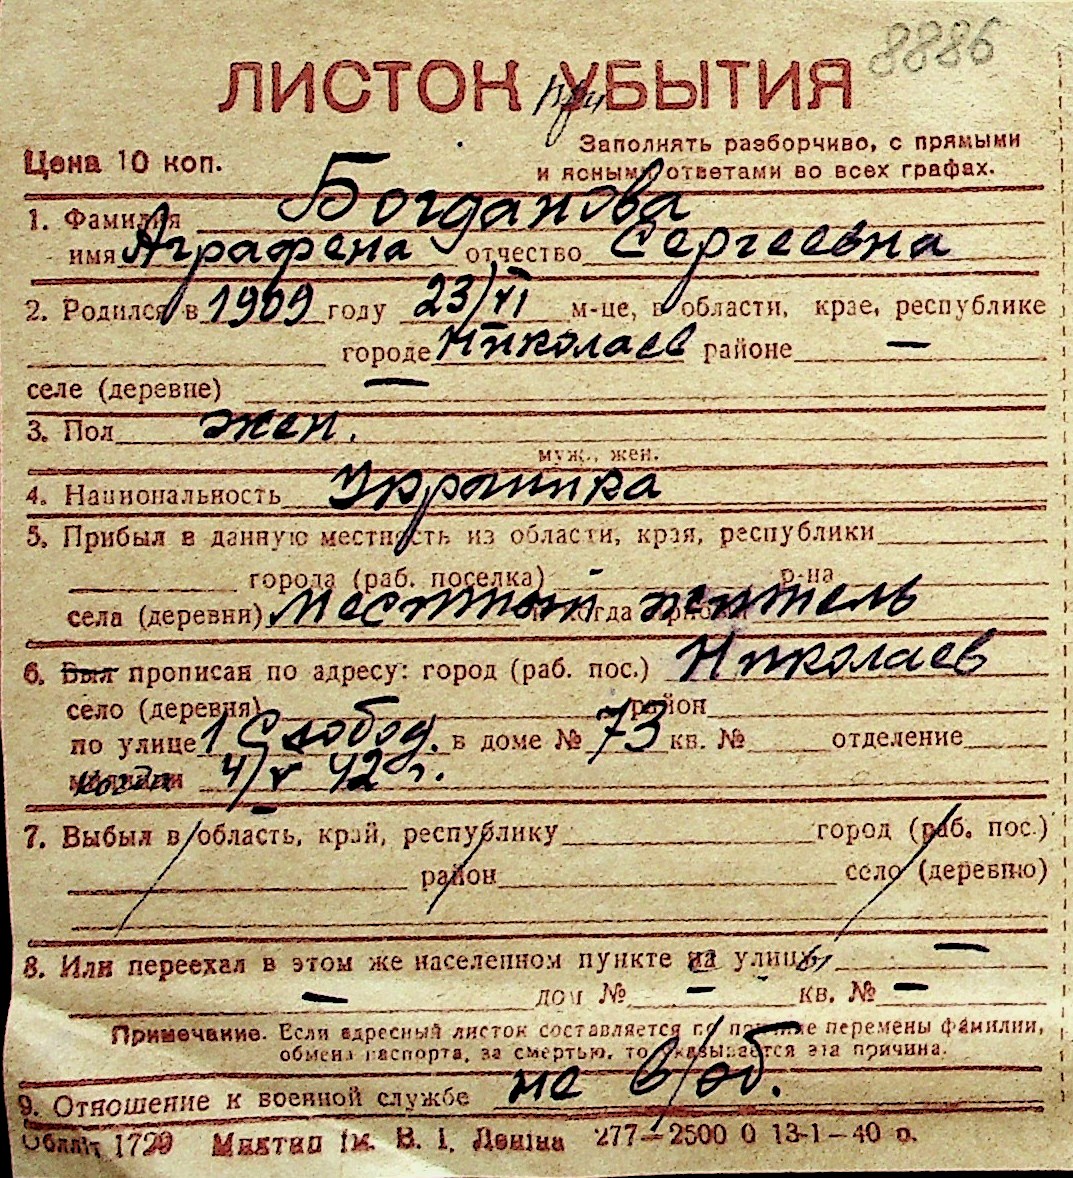 8886
ЛИСТОК при УБЫТИЯ
Заполнять разборчиво, с прямыми
Цена 10 коп. и ясными ответами во всех графах.
1. Фамилия Богданова
имя Аграфена отчество Сергеевна
2. Родился в 1909 году 23/VI м-це, в области, крае, республике
городе Николаев районе —
селе (деревне) —
3. Пол жен.
муж., жен.
4. Национальность Украинка
5. Прибыл в данную местность из области, края, республики
города (раб. поселка) р-на
села (деревни) местный и когда житель
6. Был прописан по адресу: город (раб. пос.) Николаев
село (деревня) район
по улице 1 Слобод. в доме № 73 кв. № отделение
когда 4/V 42 г.
7. Выбыл в область, край, республику город (раб. пос.)
район село (деревню)
8. Или переехал в этом же населенном пункте улицы —
— дом № — кв. № —
Примечание. Если адресный листок составляется по причине перемены фамилии,
обмена паспорта, за смертью, то указывается эта причина.
9. Отношение к военной службе не в/об.
Обліт 1729 Миктип ім. В. І. Леніна 277—2500 0 13-1—40 р.